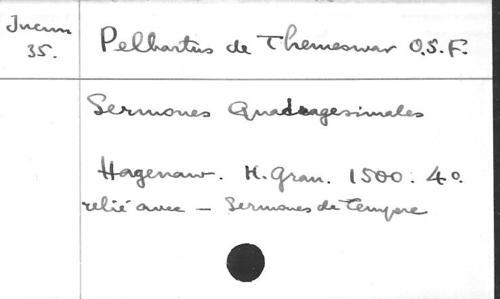 Incun
35.
Pelbartus de Themeswar O.S.F.
Sermones Quadragesimales
Hagenaw. H. Gran. 1500. 4º.
relié avec – Sermones de tempore